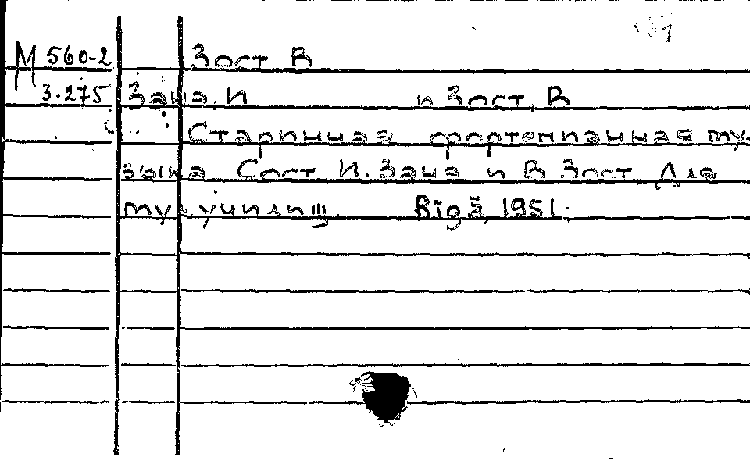 М 560-2 Зост В
3.275 Зана, И и Зост, В
Старинная фортепианная му-
зыка Сост И. Зана и В Зост Для
муз училищ Rīgā, 1951.